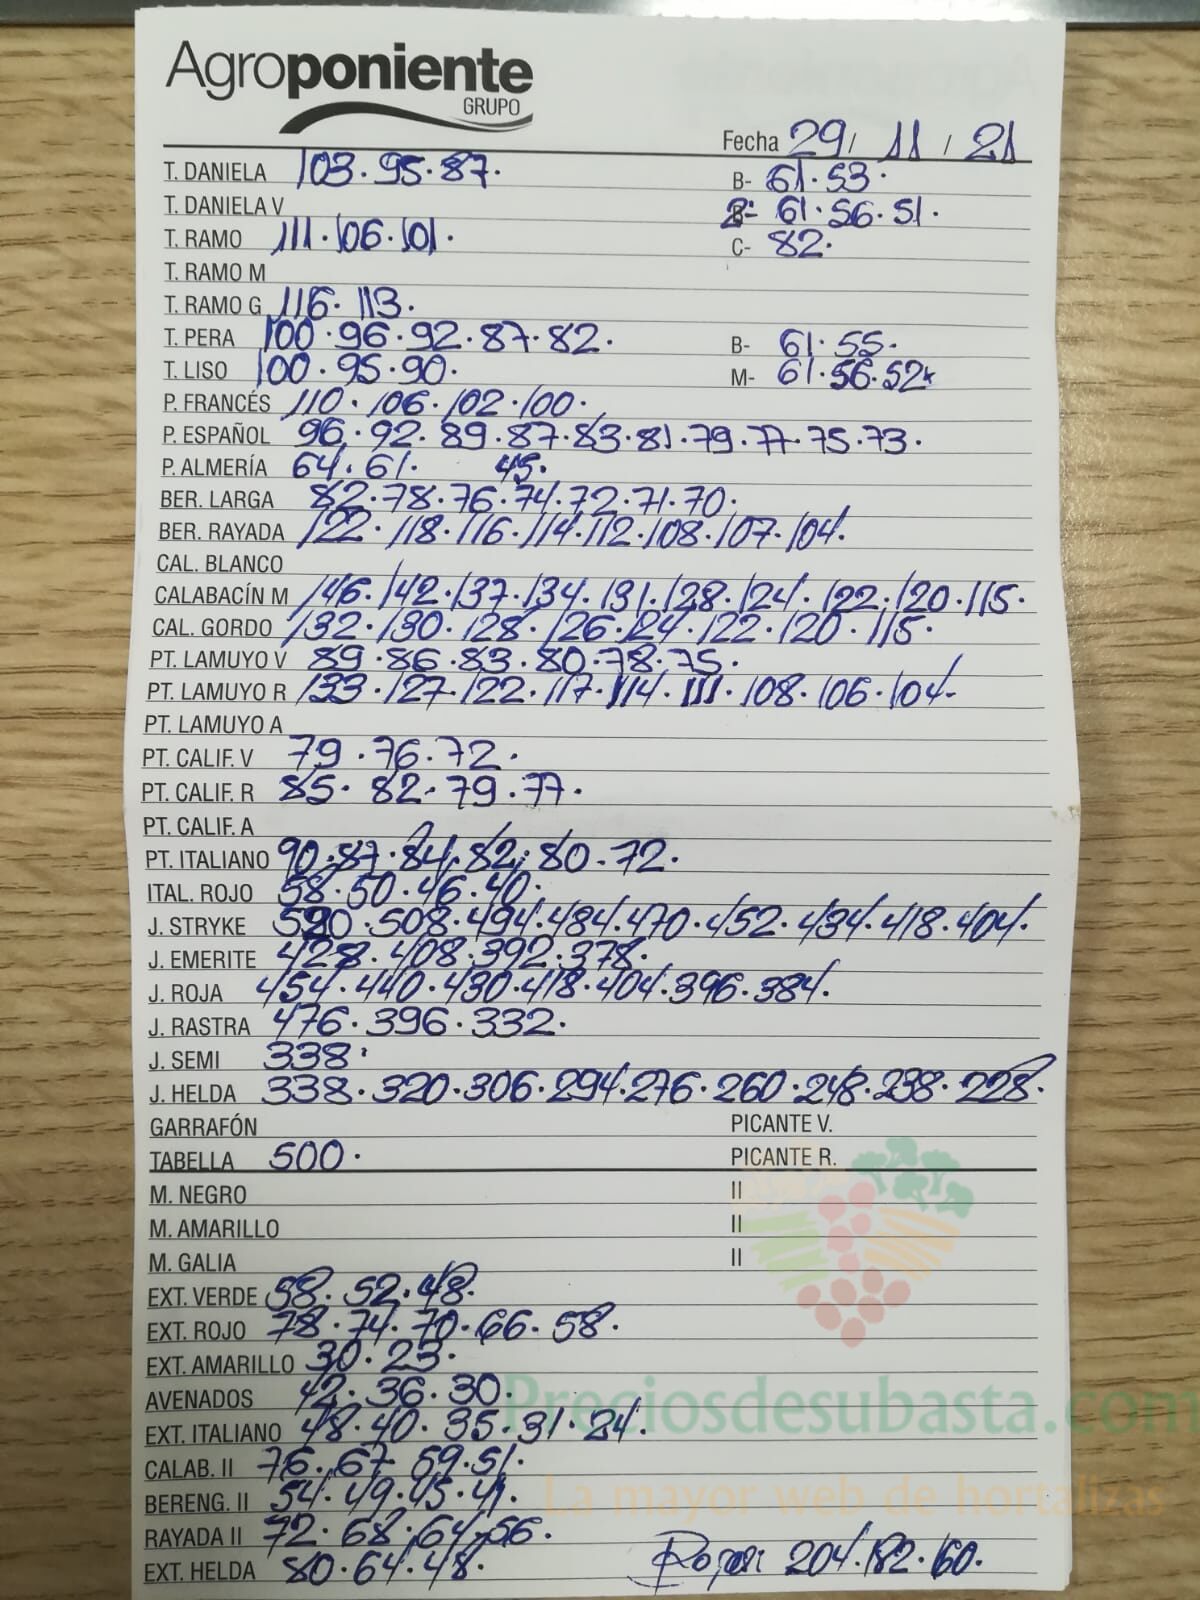 Agroponiente
GRUPO
Fecha 29 / 11 / 21
T. DANIELA 103 · 95 · 87 · B- 61 · 53 ·
T. DANIELA V 2- 61 · 56 · 51 ·
T. RAMO 111 · 106 · 101 · C- 82 ·
T. RAMO M
T. RAMO G 116 · 113 ·
T. PERA 100 · 96 · 92 · 87 · 82 · B- 61 · 55 ·
T. LISO 100 · 95 · 90 · M- 61 · 56 · 52
P. FRANCÉS 110 · 106 · 102 · 100 ·
P. ESPAÑOL 96 · 92 · 89 · 87 · 83 · 81 · 79 · 77 · 75 · 73 ·
P. ALMERÍA 64 · 61 · 45 ·
BER. LARGA 82 · 78 · 76 · 74 · 72 · 71 · 70 ·
BER. RAYADA 122 · 118 · 116 · 114 · 112 · 108 · 107 · 104 ·
CAL. BLANCO
CALABACÍN M 146 · 142 · 137 · 134 · 131 · 128 · 124 · 122 · 120 · 115 ·
CAL. GORDO 132 · 130 · 128 · 126 · 124 · 122 · 120 · 115 ·
PT. LAMUYO V 89 · 86 · 83 · 80 · 78 · 75 ·
PT. LAMUYO R 133 · 127 · 122 · 117 · 114 · 111 · 108 · 106 · 104 -
PT. LAMUYO A
PT. CALIF. V 79 · 76 · 72 ·
PT. CALIF. R 85 · 82 · 79 · 77 ·
PT. CALIF. A
PT. ITALIANO 90 · 87 · 84 · 82 · 80 · 72 ·
ITAL. ROJO 58 · 50 · 46 · 40 ·
J. STRYKE 508 · 494 · 484 · 470 · 452 · 434 · 418 · 404 ·
J. EMERITE 428 · 408 · 392 · 378 ·
J. ROJA 454 · 440 · 430 · 418 · 404 · 396 · 384 ·
J. RASTRA 476 · 396 · 332 ·
J. SEMI 338 ·
J. HELDA 338 · 320 · 306 · 294 · 276 · 260 · 248 · 238 · 228 ·
GARRAFÓN PICANTE V.
TABELLA 500 · PICANTE R.
M. NEGRO II
M. AMARILLO II
M. GALIA II
EXT. VERDE 58 · 52 · 48 ·
EXT. ROJO 78 · 74 · 70 · 66 · 58 ·
EXT. AMARILLO 30 · 23 ·
AVENADOS 42 · 36 · 30 ·
Preciosdesubasta.com
EXT. ITALIANO 48 · 40 · 35 · 31 · 24 ·
CALAB. II 76 · 67 · 59 · 51 ·
La mayor web de hortalizas
BERENG. II 54 · 49 · 45 · 41 ·
RAYADA II 72 · 68 · 64 · 56 ·
EXT. HELDA 80 · 64 · 48 · 204 · 182 · 60 ·